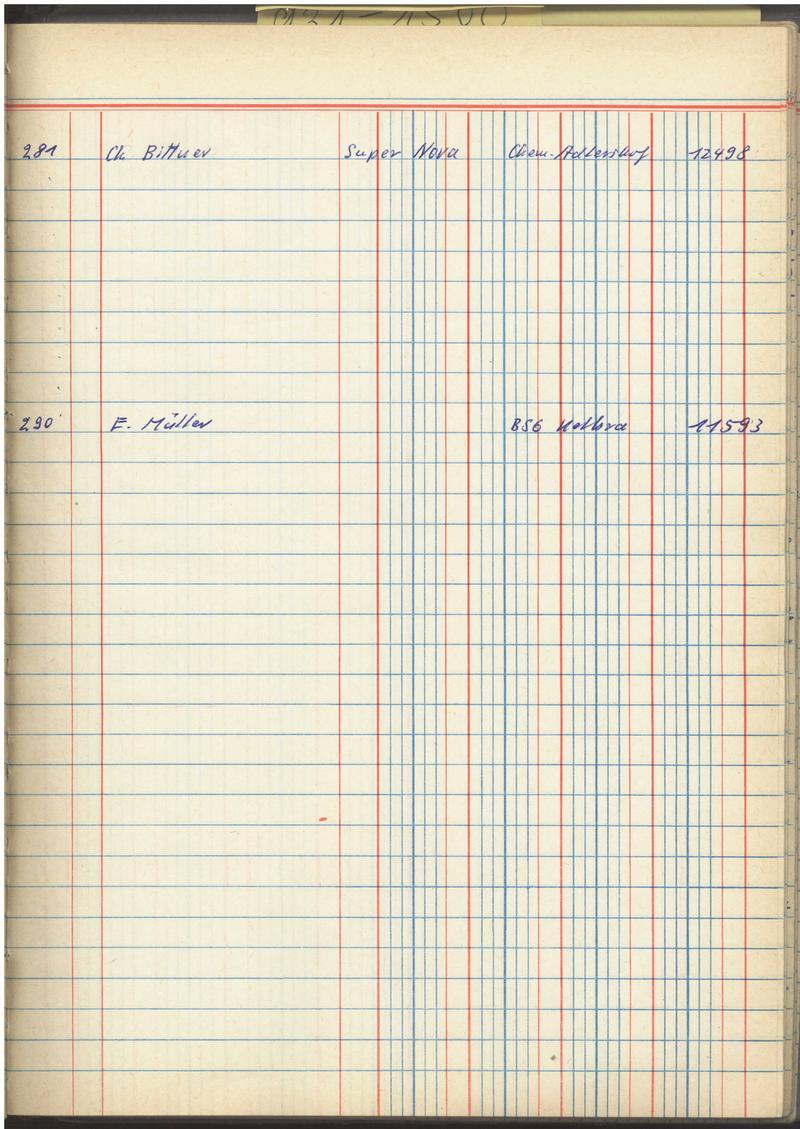 281 Ch. Bittner Super Nova Chem. Adlershof 12498
290 E. Müller BSG 11593